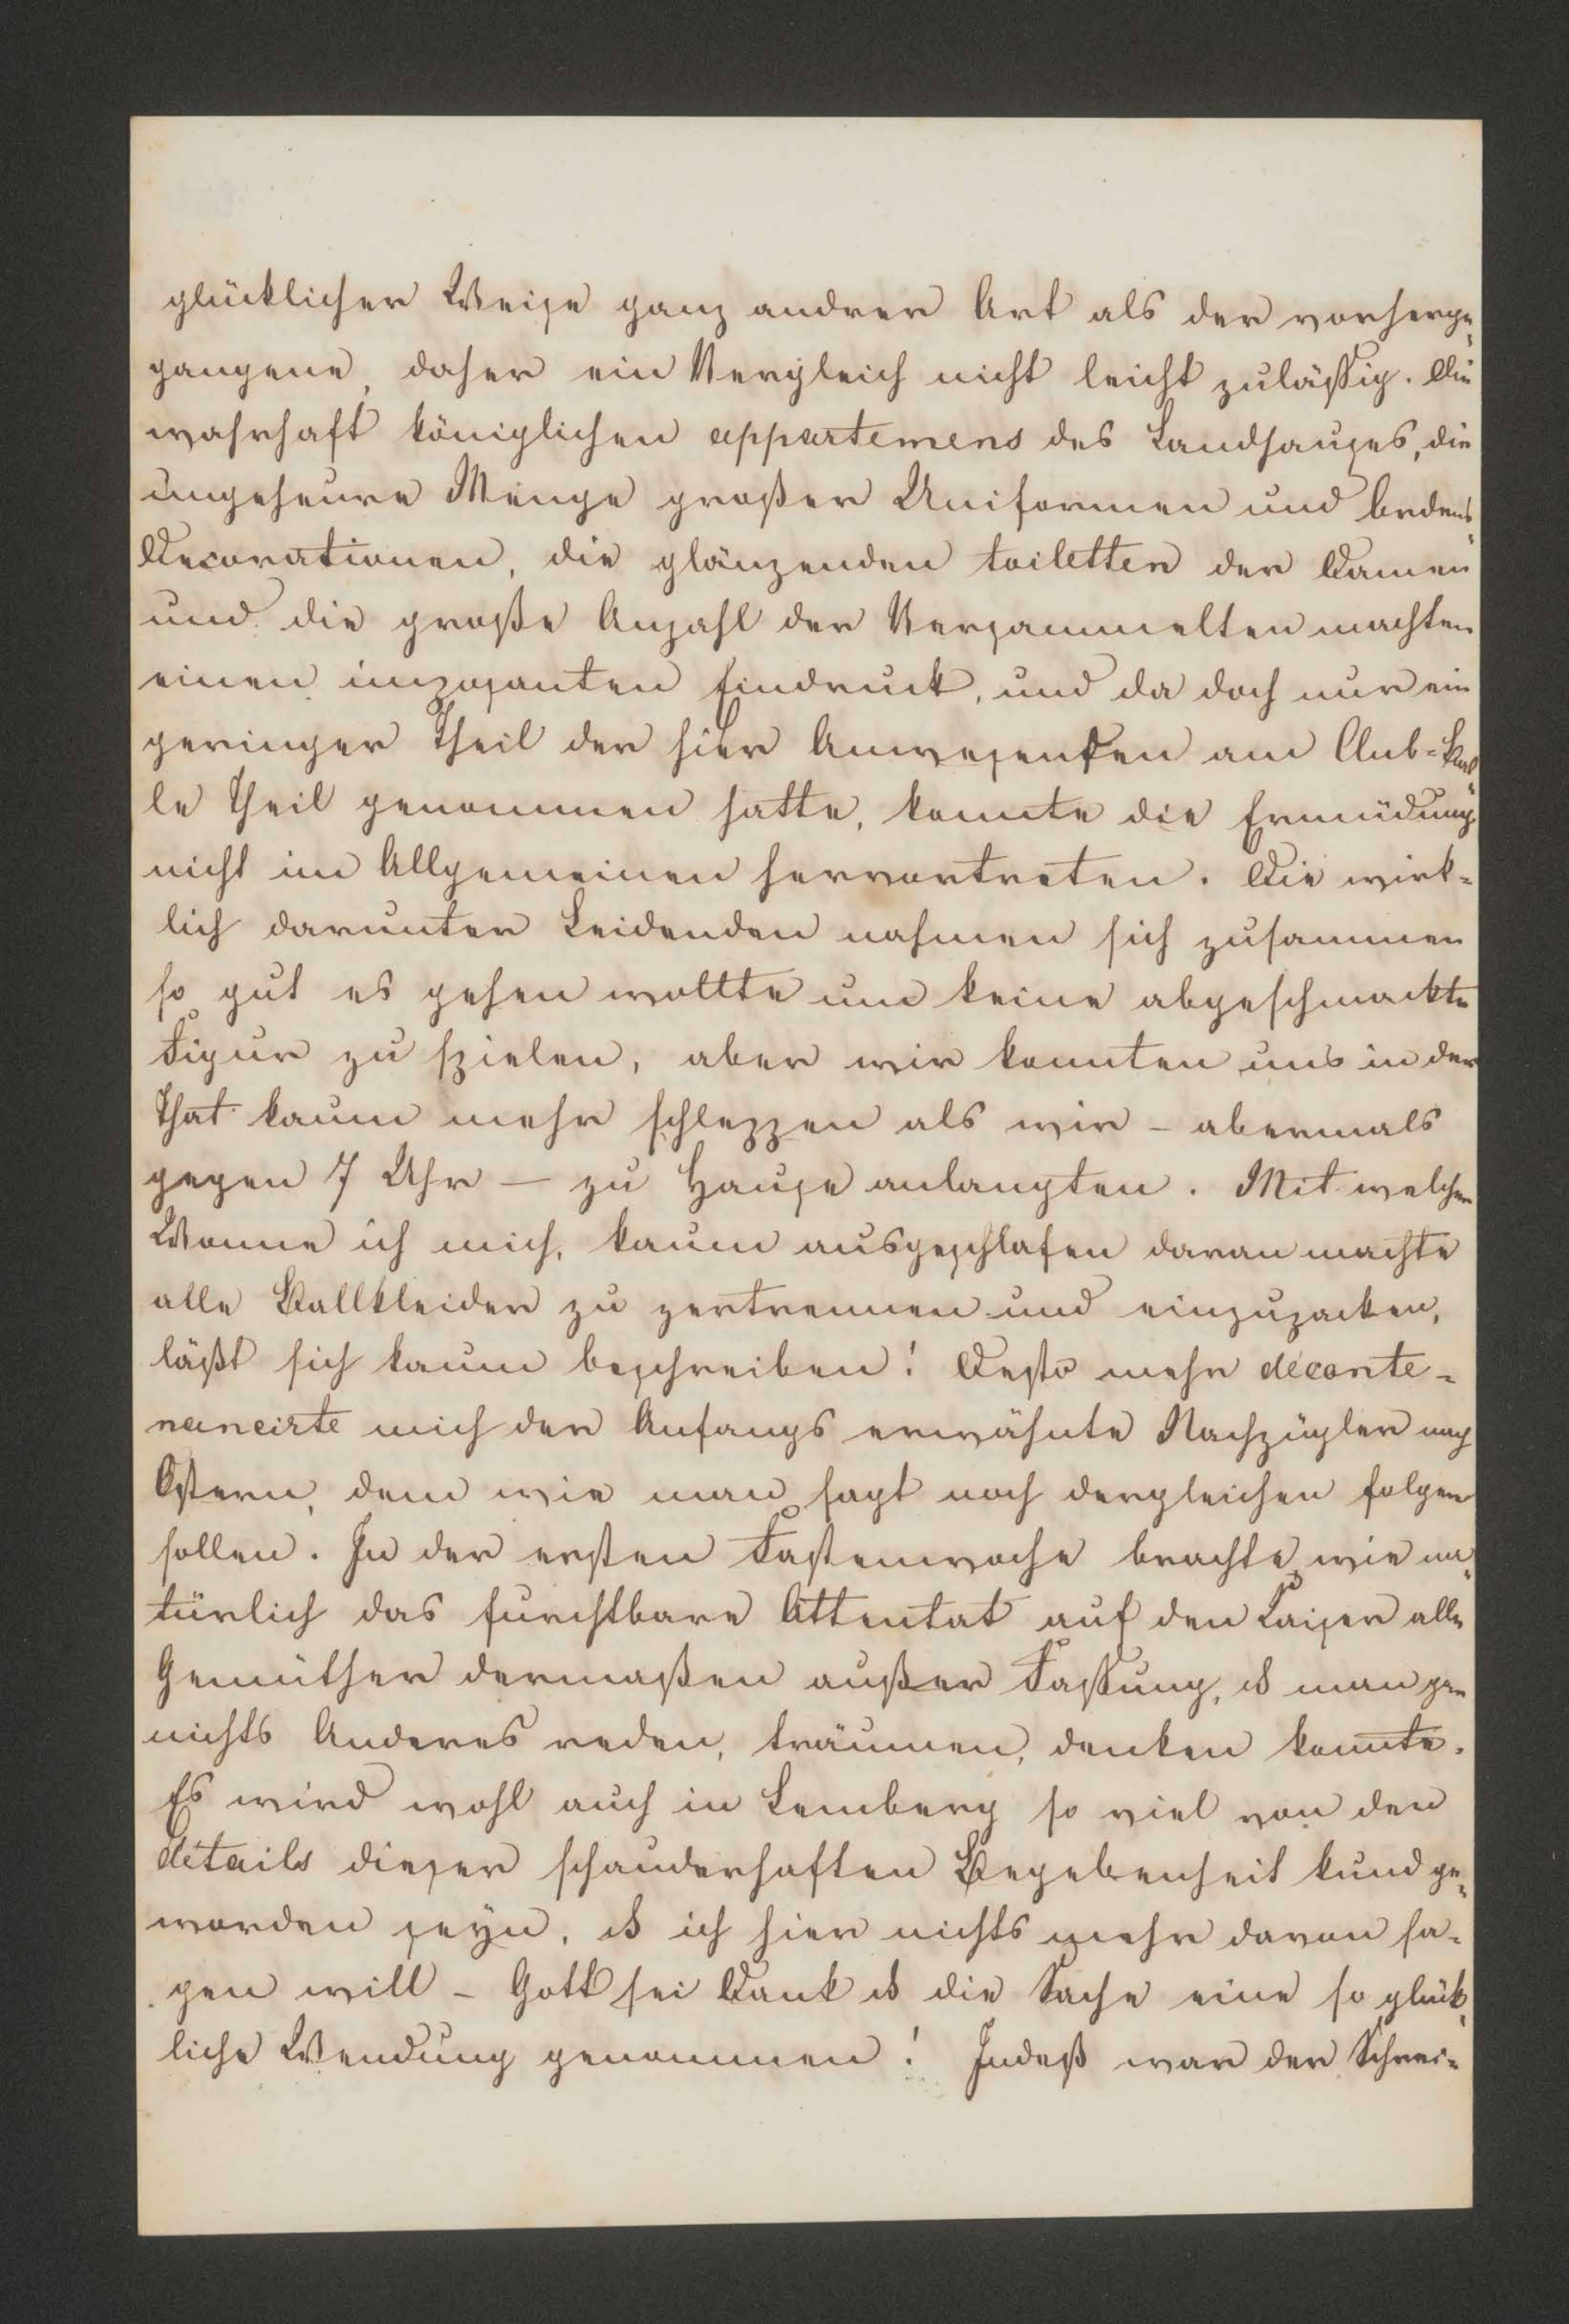 glücklicher Weise ganz andrer Art als der vorherge=
gangene, daher ein Vergleich nicht leicht zuläßig. Die
wahrhaft königlichen appartemens des Landhauses, die
ungeheure Menge großer Uniformen und Ordens=
Decorationen, die glänzenden toiletten der Damen
und die große Anzahl der Versammelten machten
einen imposanten Eindruck, und da doch nur ein
geringer Theil der hier Anwesenden am Club=Bal=
le Theil genommen hatte, konnte die Ermüdung
nicht im Allgemeinen hervortreten. Die wirk=
lich darunter Leidenden nahmen sich zusammen
so gut es gehen wollte um keine abgeschmackte
Figur zu spielen, aber wir konnten uns in der
That kaum mehr schleppen als wir – abermals
gegen 7 Uhr – zu Hause anlangten. Mit welcher
Wonne ich mich, kaum ausgeschlafen daran machte
alle Ballkleider zu zertrennen und einzupacken,
läßt sich kaum beschreiben! Desto mehr déconte=
nancirte mich der Anfangs erwähnte Nachzügler nach
Ostern, dem wie man sagt noch dergleichen folgen
sollen. In der ersten Fastenwoche brachte, wie na=
türlich das furchtbare Attentat auf den Kaiser alle
Gemüther dermaßen außer Fassung, ds man gar
nichts Anderes reden, träumen, denken konnte.
Es wird wohl auch in Lemberg so viel von den
détails dieser schauderhaften Begebenheit kund ge=
worden seyn, ds ich hier nichts mehr davon sa=
gen will – Gott sei Dank ds die Sache eine so glück=
liche Wendung genommen! Indeß war der Schrei=